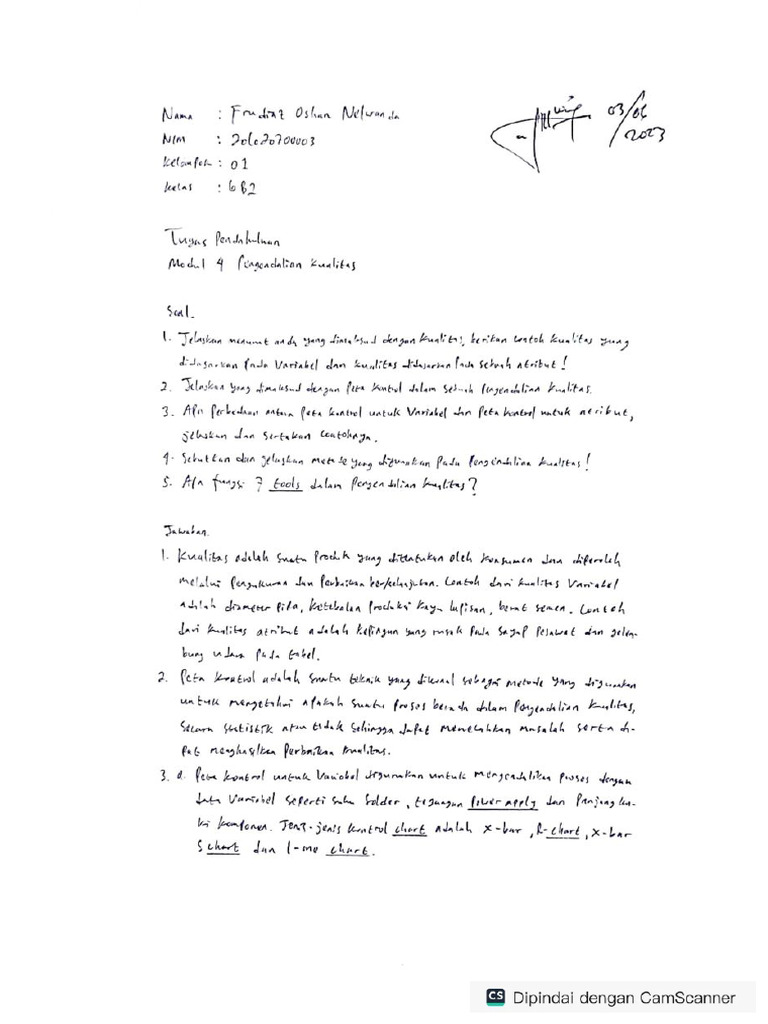 Nama : Frudiaz Oshan Nelwanda
03/06
NIM : 20602070003
/2023
Kelompok : 01
Kelas : 6B2
Tugas Pendahuluan
Modul 4 Pengendalian Kualitas
Soal.
1. Jelaskan menurut anda yang dimaksud dengan kualitas, berikan contoh kualitas yang
didasarkan pada variabel dan kualitas didasarkan pada sebuah atribut!
2. Jelaskan yang dimaksud dengan peta kontrol dalam sebuah pengendalian kualitas.
3. Apa perbedaan antara peta kontrol untuk variabel dan peta kontrol untuk atribut,
jelaskan dan sertakan contohnya.
4. Sebutkan dan jelaskan metode yang digunakan pada pengendalian kualitas!
5. Apa fungsi 7 tools dalam pengendalian kualitas?
Jawaban.
1. Kualitas adalah suatu produk yang ditentukan oleh konsumen dan diperoleh
melalui pengukuran dan perbaikan berkelanjutan. Contoh dari kualitas variabel
adalah diameter pipa, ketebalan produksi kayu lapisan, berat semen. Contoh
dari kualitas atribut adalah kepingan yang rusak pada sayap pesawat dan gelem-
bung udara pada tabel.
2. Peta kontrol adalah suatu teknik yang dikenal sebagai metode yang digunakan
untuk mengetahui apakah suatu proses berada dalam pengendalian kualitas,
secara statistik atau tidak sehingga dapat memecahkan masalah serta da-
pat menghasilkan perbaikan kualitas.
3. a. Peta kontrol untuk variabel digunakan untuk mengendalikan proses dengan
data variabel seperti suhu solder, tegangan power apply dan panjang ka-
ki komponen. Jenis-jenis kontrol chart adalah x-bar, R-chart, x-bar
S chart dan I-mr chart.
CS Dipindai dengan CamScanner